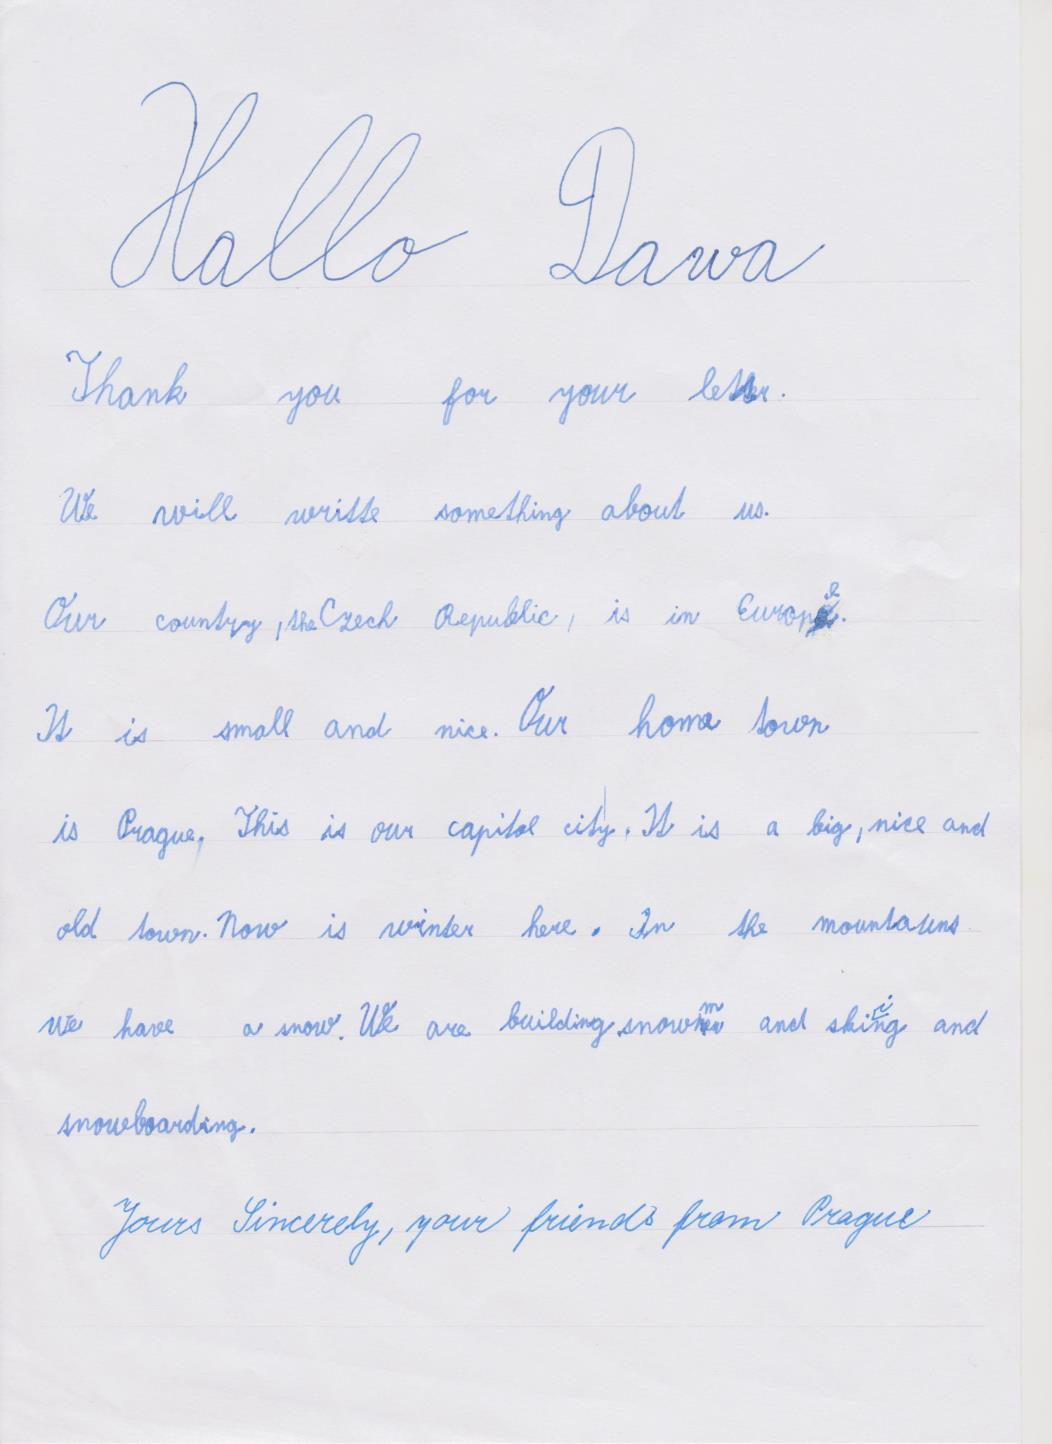 Hallo Dawa
Thank you for your letter.
We will writte something about us.
Our country, the Czech Republic, is in Europe.
It is small and nice. Our home town
is Prague. This is our capitol city. It is a big, nice and
old town. Now is winter here. In the mountains
we have a snow. We are building snowmen and skiing and
snowboarding.
Yours Sincerely, your friends from Prague